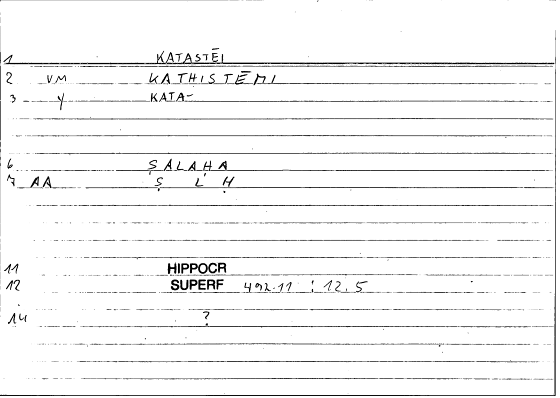 1 KATASTĒI
2 VM KATHISTĒMI
3 Y KATA-
6 ṢALAḤA
7 AA Ṣ L Ḥ
11 HIPPOCR
12 SUPERF 492.11 : 12.5
14 ?